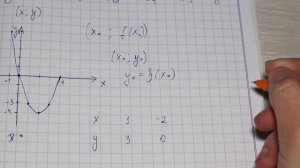 (x; y)
(x₀ ; f(x₀))
(x₀; y₀)
y₀ = f(x₀)
x
x 1 -2
y 3 0